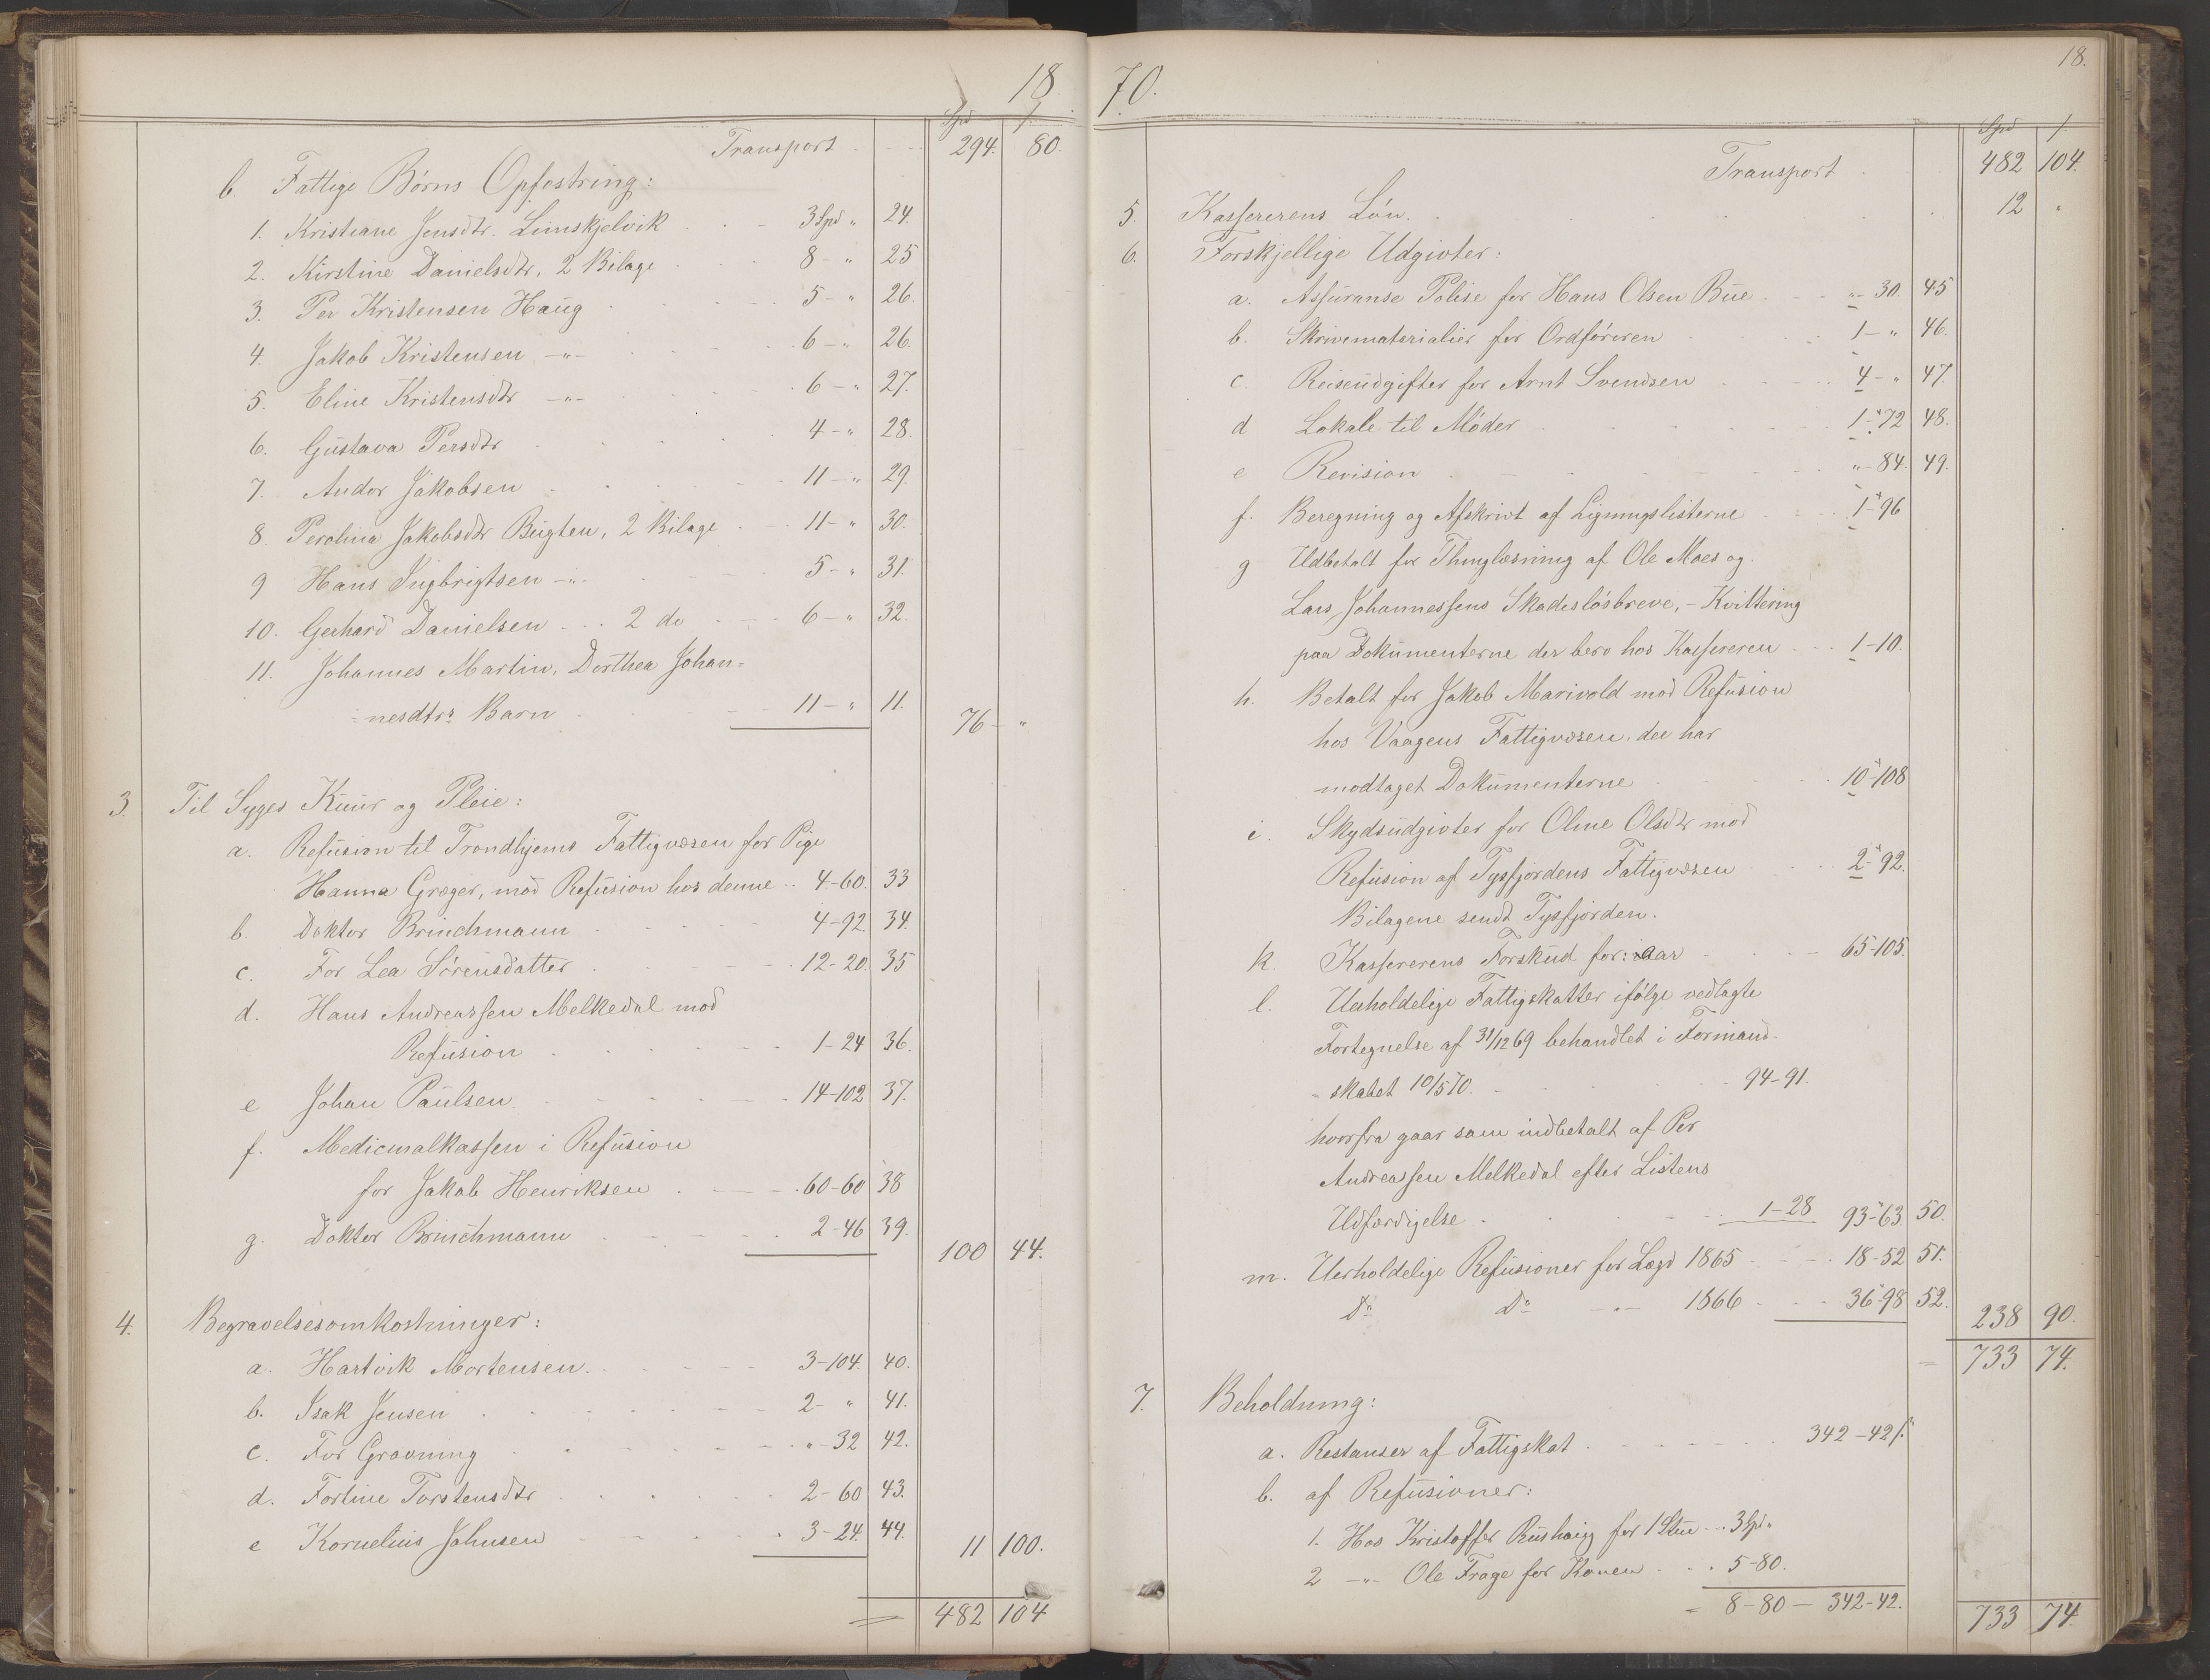 18
Spd ß
Transport 294. 80.
b. Fattige Börns Opfostring:
1. Kristiane Jensdtr. Limskjelvik 3 Spd " 24.
2. Kirstine Danielsdtr, 2 Bilage 8 - " 25
3. Per Kristensen Haug 5 - " 26.
4. Jakob Kristensen -"- 6 - " 26.
5. Eline Kristensdtr -"- 6 - " 27.
6. Gustava Persdtr 4 - " 28.
7. Andor Jakobsen 11 - " 29.
8. Perolina Jakobsdtr Bugten, 2 Bilage 11 - " 30.
9 Hans Ingbrigtsen -"- 5 - " 31.
10. Gerhard Danielsen 2 do 6 - " 32.
11. Johannes Martin, Dorthea Johan=
=nesdtrs Barn 11 - " 11. 76 - "
3. Til Syges Kuur og Pleie:
a. Refusion til Trondhjems Fattigvæsen for Pige
Hanna Græger, mod Refusion hos denne 4-60. 33
b. Doktor Brinchmann 4-92. 34.
c. For Lea Sörensdatter 12-20. 35
d. Hans Andreassen Melkedal mod
Refusion 1-24 36.
e Johan Paulsen 14-102 37.
f. Medicinalkassen i Refusion
for Jakob Henriksen 60-60 38
g. Doktor Brinchmann 2-46 39. 100 44.
4. Begravelsesomkostninger:
a. Hartvik Mortensen. 3-104. 40.
b. Isak Jensen 2- " 41.
c. For Gravning "-32 42.
d. Fortine Torstensdtr 2-60 43.
e Kornelius Johnsen 3-24. 44. 11 100.
= 482 104
70.
18.
Spd ß
Transport 482 104.
5. Kassererens Lön. 12 "
6. Forskjellige Udgivter:
a. Assuranse Polise for Hans Olsen Bue "-30. 45
b. Skrivematerialier for Ordföreren 1- " 46.
c. Reiseudgifter for Arnt Svendsen 4- " 47.
d Lokale til Möder 1-72 48.
e Revision "-84. 49.
f. Beregning og Afskrivt af Ligningslisterne 1-96
g Udbetalt for Thinglæsning af Ole Moes og
Lars Johannessens Skadeslösbreve, - Kvittering
paa Dokumenterne der bero hos Kassereren 1-10.
h. Betalt for Jakob Marivold mod Refusion
hos Vaagens Fattigvæsen, der har
modtaget Dokumenterne 10-108
i. Skydsudgivter for Oline Olsdtr mod
Refusion af Tysfjordens Fattigvæsen 2-92.
Bilagene sendt Tysfjorden.
k. Kassererens Forskud for: Aar 65-105.
l. Uerholdelige Fattigskatter ifölge vedlagte
Fortegnelse af 31/12 69 behandlet i Formand-
-skabet 10/5 70. 94-91.
hvorfra gaar som indbetalt af Per
Andreassen Melkedal efter Listens
Udfærdigelse 1-28 93-63 50.
m. Uerholdelige Refusioner for Lægd 1865 18-52 51.
Do Do -"- 1866 36-98 52. 238 90.
= 733 74.
7. Beholdning:
a. Restanser af Fattigskat 342-42 ß
b. af Refusioner:
1. Hos Kristoffer Rushaug for 1 Stue 3 Spd "
2 -"- Ole Frage for Konen 5-80.
= 8-80 - 342-42. 733 74.